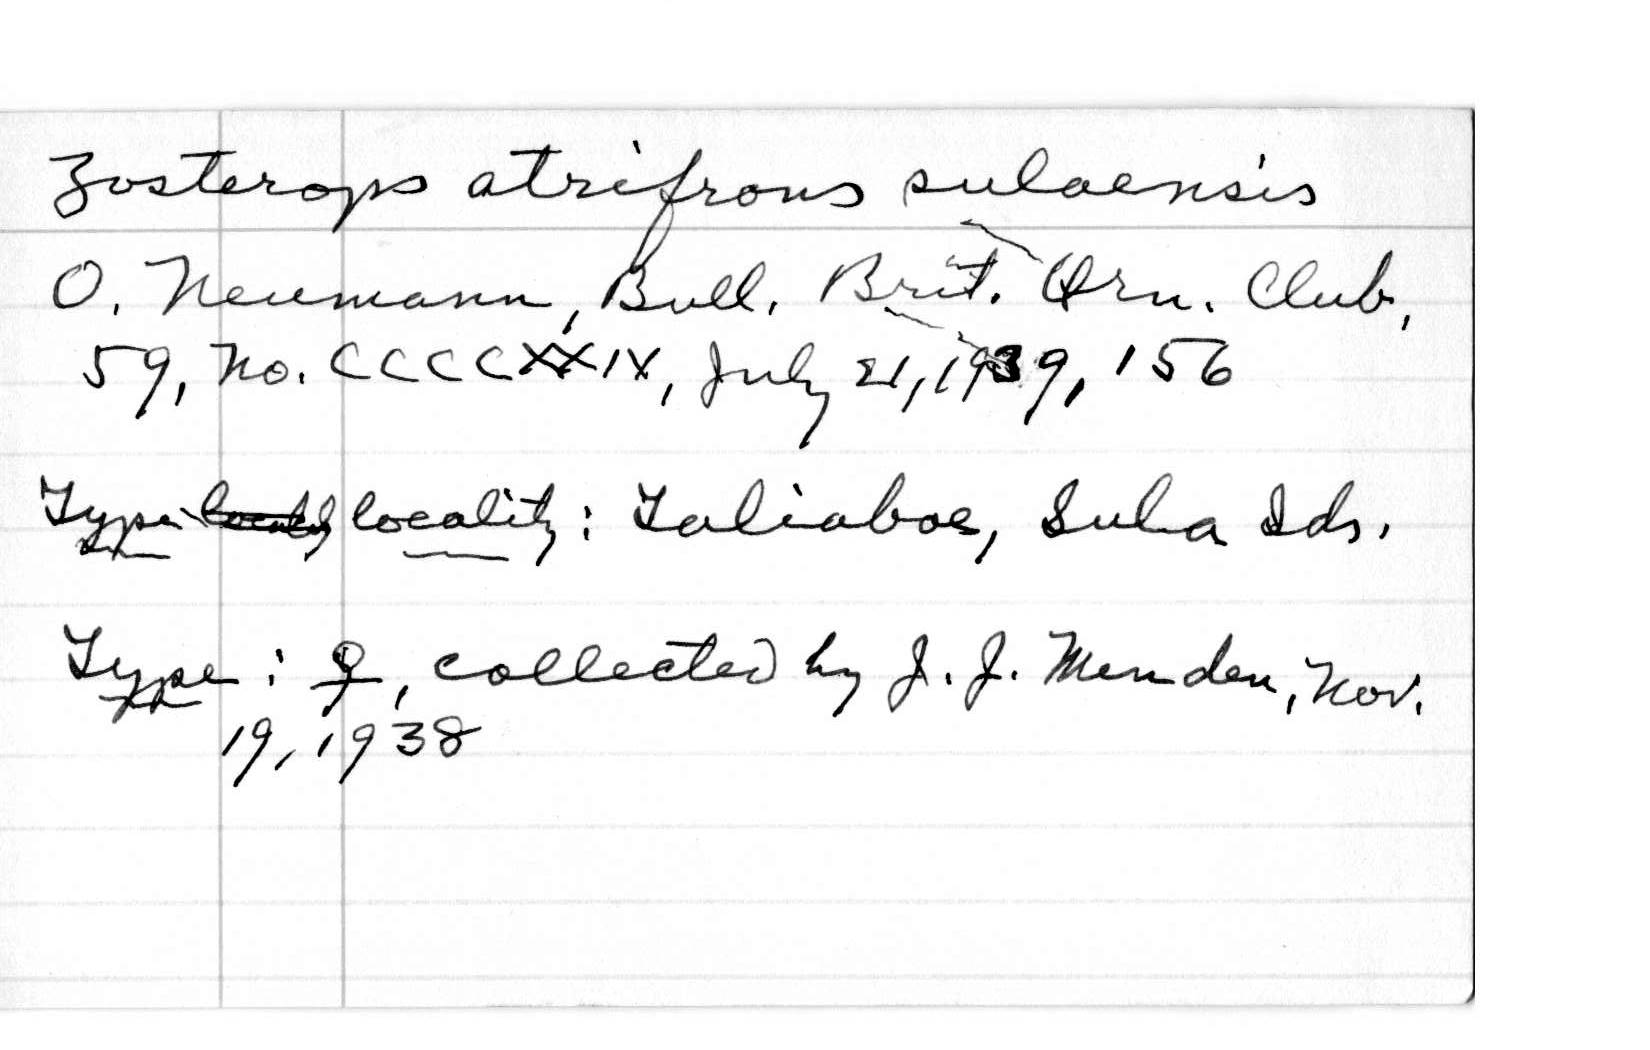 Zosterops atrifrons sulaensis
O. Neumann, Bull. Brit. Orn. Club,
59, No. CCCCXXIX, July 21, 1939, 156
Type locality: Taliaboe, Sula Ids.
Type: ♀, collected by J. J. Menden, Nov.
19, 1938